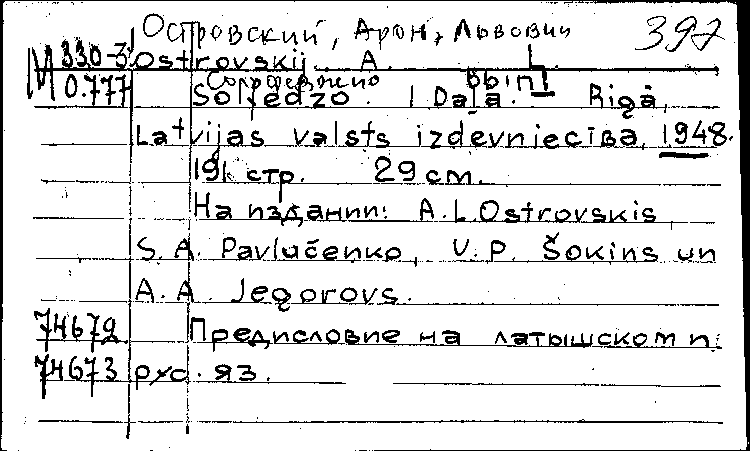 Островский, Арон, Львович 397
М 330-3 Ostrovskij A.
0.777 Сольфеджио Вып. 1
Solfedžo. I Daļa. Rīgā,
Latvijas valsts izdevniecība, 1948.
191 стр. 29 см.
На издании: A.L.Ostrovskis,
S.A. Pavlučenko, V.P. Šokins un
A.A. Jegorovs.
74672 Предисловие на латышском и
74673 рус. яз.